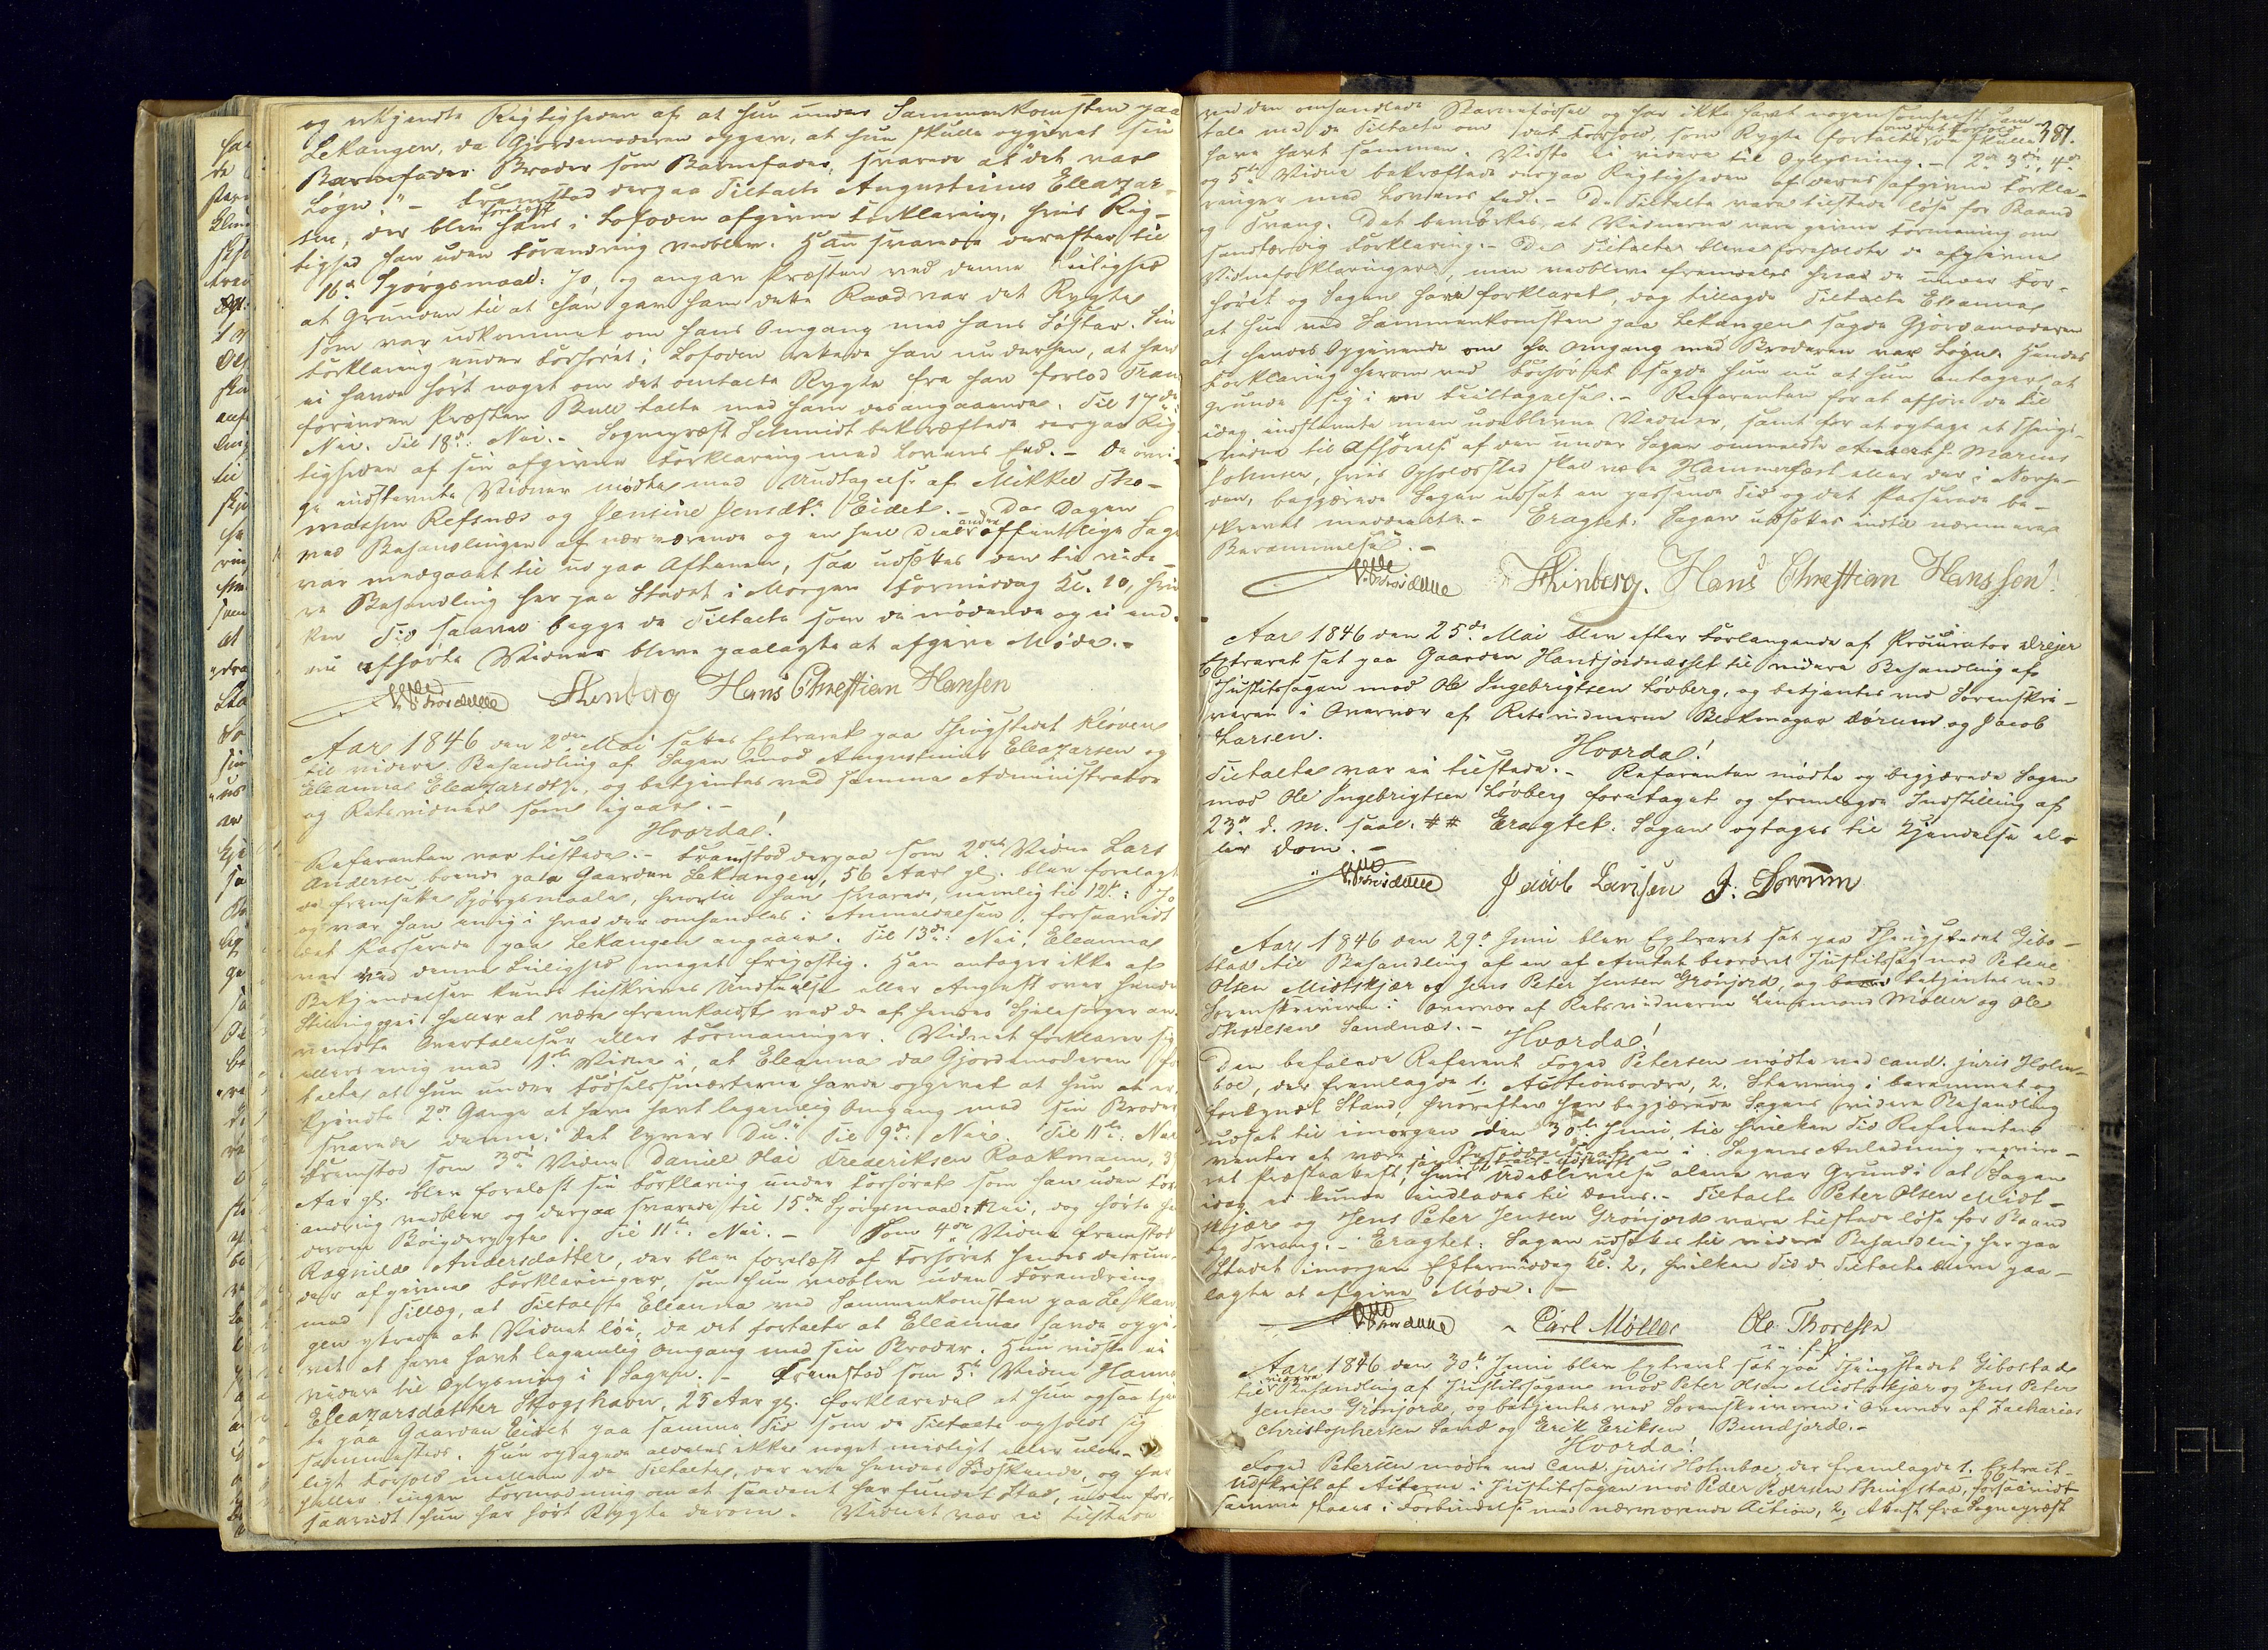 og erkjendte Rigtigheden af at hun under Sammenkomsten paa
Lekangen, da Gjordemoderen opgav, at hun skulle opgivet sin
Barnefader Broder som Barnefader, svarede at "det var
Løgn". – Fremstod derpaa Tiltalte Augustinus Eleazar-
sen, der blev forelæst hans i Lofoden afgivne Forklaring, hvis Rig-
tighed han uden Forandring vedblev. Han svarede derefter til
16de Spørgsmaal: Jo, og angav Præsten ved denne Leilighed
at Grunden til at han gav ham dette Raad var det Rygte
som var udkommet om hans Omgang med hans Søster. Sin
Forklaring under Forhøret i Lofoden rettede han nu derhen, at han
ei havde hört noget om det omtalte Rygte fra han forlod Tran
förinden Præsten Bull talte med ham desangaaende. Til 17de
Nei. Til 18de: Nei. – Sognepræst Schmidt bekræftede derpaa Rig-
tigheden af sin afgivne Forklaring med Lovens Eed. – De övri-
ge indstevnte Vidner mødte med Undtagelse af Mikkel Tho-
massen Refsnæs og Jensine Jensdtr Eidet. – Da Dagen
ved Behandlingen af nærværende og en heel Deel andre offentlige Sage
var medgaaet til ud paa Aftenen, saa udsættes den til vide-
re Behandling her paa Stedet i Morgen Formiddag Kl. 10, hvil
ken Tid saavel begge de Tiltalte som de mødende og ei end-
nu afhørte Vidner bleve paalagte at afgive Møde. –
Hans Chrestian Hansen
Aar 1846 den 2den Mai sattes Extraret paa Thingstedet Kløven
til videre Behandling af Sagen mod Augustinus Eleazarsen og
Eleanna Eleazarsdtr, og betjentes ved samme Administrator
og Retsvidner som igaar. –
Hvorda!
Referenten var tilstede. – Fremstod derpaa som 2det Vidne Lars
Andersen boende paa Gaarden Lekangen, 56 Aar gl. blev forelagt
de fremsatte Spørgsmaale, hvortil han svarede, nemlig til 12te: Jo
og var han enig i hvad der omhandles i Anmeldelsen, forsaavidt
det Passerede paa Lekangen angaaer. Til 13de: Nei, Eleanna
var ved denne Leilighed meget frapostig. Han antager ikke at
Bekjendelsen kunde tilskrives Undseelse eller Angst over hendes
Stilling, ei heller at være fremkaldt ved de af hendes Sjælesørger an-
vendte Overtalelser eller Formaninger. Vidnet forklarer sig
ellers enig med 1ste Vidne i, at Eleanna da Gjordemoderen for
talte at hun under Födselssmerterne havde opgivet at hun at er
kjendte 2de Gange at have havt legemlig Omgang med sin Broder
svarede denne: "det lyver Du". Til 9de: Nei. Til 11te: Nei
Fremstod som 3die Vidne Daniel Hai Frederiksen Kaakmann, 3
Aar gl. blev forelæst sin Forklaring under Forhöret som han uden For
andring vedblev og derpaa svarede til 15de Spørgsmaal: Nei, dog hørte han
derom Böigderygte. Til 11te: Nei. – Som 4de Vidne fremstod
Ragnilde Andersdatter, der blev forelæst af Forhöret hendes derun-
der afgivne Forklaringer, som hun vedblev uden Forandring
med Tillæg, at Tiltalte Eleanna ved Sammenkomsten paa Lekan-
gen ytrede at Vidnet löi, da det fortalte at Eleanna havde opgi-
vet at have havt legemlig Omgang med sin Broder. Hun vidste ei
videre til Oplysning i Sagen. – Fremstod som 5te Vidne Hanna
Eleazarsdatter Skogshavn, 25 Aar gl. forklarede at hun ogsaa tjen
te paa Gaarden Eidet paa samme Tid som de Tiltalte opholdt sig
sammesteds. Hun opdagede aldeles ikke noget mislig eller ulov-
ligt Forhold mellem de Tiltalte, der ere hendes Södskende, og har
heller ingen Formodning om at saadant har fundet Sted, uden for-
saavidt hun har hört Rygte derom. Vidnet var ei tilstede
381.
ved den omhandlede Barnefödsel og har ikke havt nogensomhelst Sam-
tale med de Tiltalte om det Forhold, som Rygte fortalte de skulle
have havt sammen. Vidste ei videre til Oplysning. – 2det 3die, 4de
og 5te Vidne bekræftede derpaa Rigtigheden af deres afgivne Forkla-
ringer med Lovens Eed. – De Tiltalte vare tilstede löse for Baand
og Tvang. Det bemærkes, at Vidnerne vare givne Formaning om
sandfærdig Forklaring. – De Tiltalte bleve foreholdte de afgivne
Vidneforklaringer, men vedbleve fremdeles hvad de under For-
höret og Sagen have forklaret, dog tillagde Tiltalte Eleanna
at hun ved Sammenkomsten paa Lekangen sagde Gjordemoderen
at hendes Opgivende om Omgang med Broderen var Lögn. Hendes
Forklaring herom ved Forhöret sagde hun nu at hun antager at
grunde sig i en Feiltagelse. – Referenten for at afhøre de til
idag indstevnte men udeblevne Vidner, samt for at optage et Things-
vidne til Afhörelse af den under Sagen ommeldte Marcus
Johnsen, hvis Opholdssted skal være Hammerfest eller der i Nærhe-
den, begjærede Sagen udsat en passende Tid og det Passerede be-
skrevet meddeelt. – Eragtet: Sagen udsættes indtil nærmere
Berammelse. –
Hans Chrestian Hanssen
Aar 1846 den 25de Mai blev efter Forlangende af Procurator Dreyer
Extraret sat paa Gaarden Handjordnæsset til videre Behandling af
Justitssagen mod Ole Ingebrigtsen Lövberg, og betjentes ved Sorenskri-
veren i Overvær af Retsvidnerne Blokmager Dørum og Jacob
Larsen.
Hvorda!
Tiltalte var ei tilstede. – Referenten mødte og begjærede Sagen
mod Ole Ingebrigtsen Lövberg foretaget og fremlagde Indstilling af
23de d. M. saal. ## Eragtet. Sagen optages til Kjendelse el-
ler Dom. –
Jacob Larsen J. Dørrum
Aar 1846 den 29de Juni blev Extraret sat paa Thingstedet Gibo-
stad til Behandling af en af Amtet beordret Justitssag mod Peter
Olsen Midtskjær og Jens Peter Jensen Grønjord, og betjentes ved
Sorenskriveren i Overvær af Retsvidnerne Lensmand Møller og Ole
Thoresen Sandnæs. –
Hvorda!
Den befalede Referent Foged Petersen mødte ved cand. juris Holm-
boe, der fremlagde 1. Actionsordre, 2. Stevning i berammet og
forkyndt Stand, hvorefter han begjærede Sagens videre Behandling
udsat til imorgen den 30te Juni, til hvilken Tid Referenten
venter at være i Besiddelse af en i Sagens Anledning reqvire-
ret Præsteattest, hvis Udeblivelse alene var Grund i at Sagen
idag ei kunne indlades til Doms. – Tiltalte Peter Olsen Midt-
skjær og Jens Peter Jensen Grønjord vare tilstede löse for Baand
og Tvang. – Eragtet: Sagen udsættes til videre Behandling her paa
Stedet imorgen Eftermiddag Kl. 2, hvilken Tid de Tiltalte bleve paa-
lagte at afgive Møde. –
Carl Møller Ole Thoresen
Aar 1846 den 30te Juni blev Extraret sat paa Thingstedet Gibostad
til videre Behandling af Justitssagen mod Peter Olsen Midtskjær og Jens Peter
Jensen Grønjord, og betjentes ved Sorenskriveren i Overvær af Zacharias
Christophersen Sand og Erik Eriksen Bundjord. –
Hvorda!
Foged Petersen mødte ved Cand. juris Holmboe, der fremlagde 1. Extract-
Udskrift af Acterne i Justitssagen mod Peder Pedersen Thingstad, forsaavidt
samme staaer i Forbindelse med nærværende Action, 2. Attest fra Sognepræst